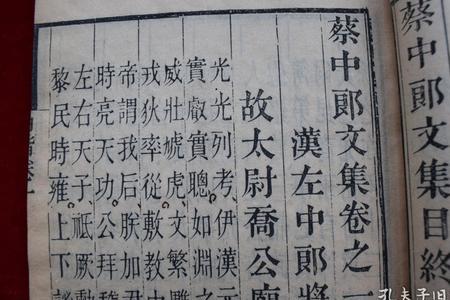 蔡中郎文集目終
蔡中郎文集卷之一
漢左中郎將
故太尉喬公廟
光光列考、伊漢元
實叡實聰、如淵之
威壯虓虎、文繁
戎狄率從、敷教中
帝謂我后、朕加君
時亮天功。公拜
左右天子、祗厥勳
黎民時雍。上下
孔夫子旧